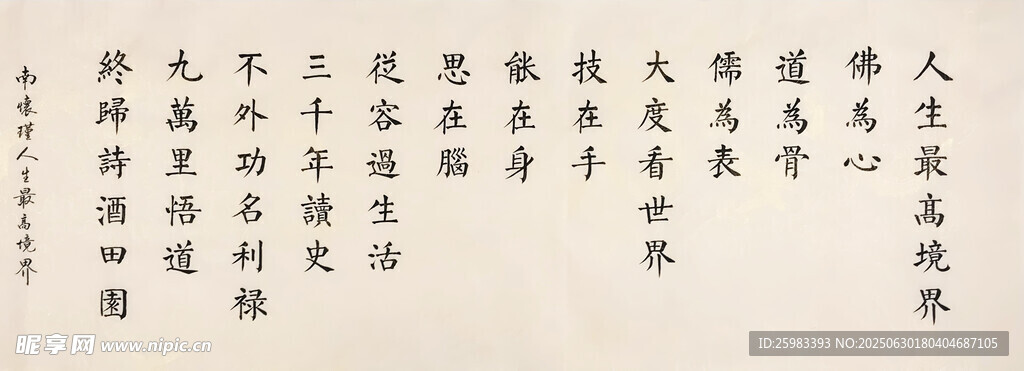 人生最高境界
佛為心
道為骨
儒為表
大度看世界
技在手
能在身
思在腦
從容過生活
三千年讀史
不外功名利禄
九萬里悟道
終歸詩酒田園
南懷瑾人生最高境界
昵享网 www.nipic.cn
ID:25983393 NO:20250630180404687105